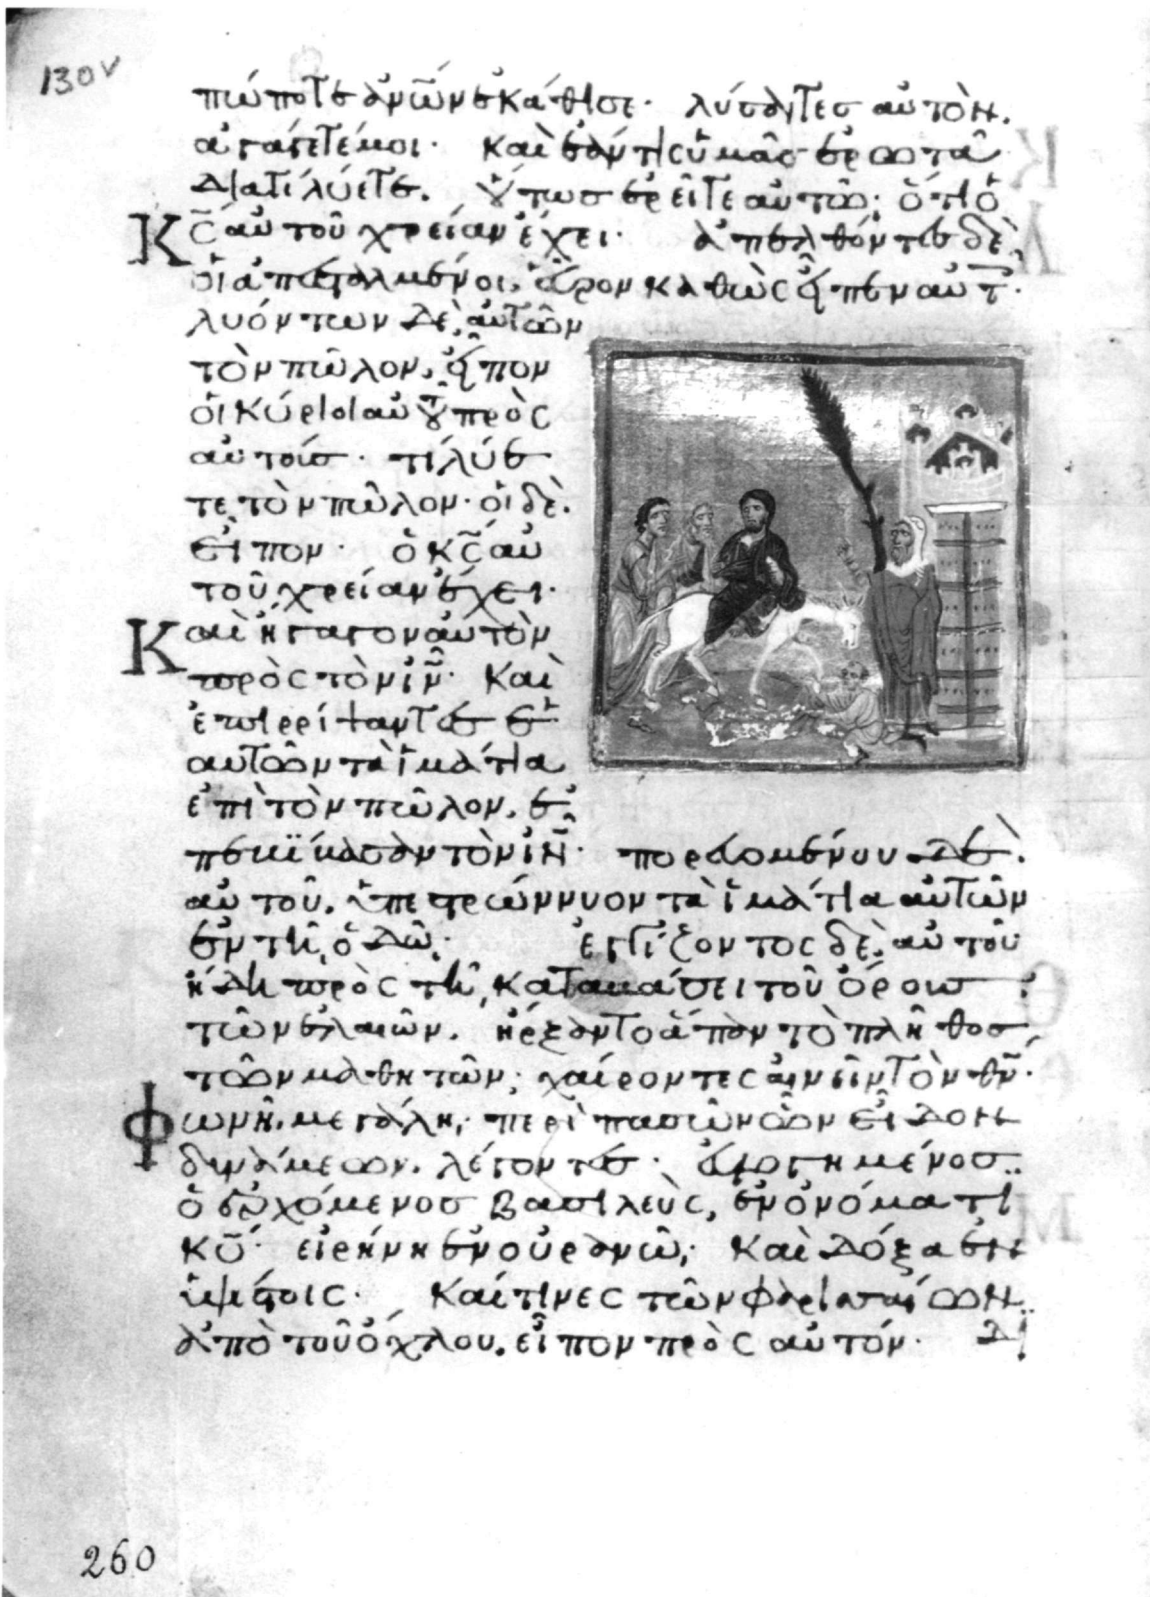 130v
πώποτε ἀν̅ω̅ν ἐκάθισε· λύσαντες αὐτὸν.
ἀγάγετέ μοι· καὶ ἐάν τις ὑμᾶς ἐρωτᾶ
διατί λύετε. οὕτως ἐρεῖτε αὐτῶ· ὅτι ὁ
κ̅ς̅ αὐτοῦ χρείαν ἔχει· ἀπελθόντες δὲ
οἱ ἀπεσταλμένοι, εὗρον καθὼς εἶπεν αὐτ
λυόντων δὲ αὐτῶν
τὸν πῶλον, εἶπον
οἱ κύριοι αὐτοῦ πρὸς
αὐτούς· τί λύε
τε τὸν πῶλον· οἱ δὲ
εἶπον· ὁ κ̅ς̅ αὐ
τοῦ χρείαν ἔχει·
Καὶ ἤγαγον αὐτὸν
πρὸς τὸν ι̅ν̅· καὶ
ἐπιρρίψαντες ἑ
αυτῶν τὰ ἱμάτια
ἐπὶ τὸν πῶλον, ἐ
πεβίβασαν τὸν ι̅ν̅· πορευομένου δὲ
αὐτοῦ, ὑπεστρώννυον τὰ ἱμάτια αὐτῶν
ἐν τῆ ὁδῶ· ἐγγίζοντος δὲ αὐτοῦ
ἤδη πρὸς τῆ καταβάσει τοῦ ὄρους
τῶν ἐλαιῶν. ἤρξαντο ἅπαν τὸ πλῆθος
τῶν μαθητῶν, χαίροντες αἰνεῖν τὸν θ̅ν̅·
φωνῆ μεγάλη, περὶ πασῶν ὧν εἶδον
δυνάμεων. λέγοντες· εὐλογημένος
ὁ ἐρχόμενος βασιλεὺς, ἐν ὀνόματι
κ̅υ̅· εἰρήνη ἐν οὐρανῶ, καὶ δόξα ἐν
ὑψίστοις· Καί τινες τῶν φαρισαίων
ἀπὸ τοῦ ὄχλου, εἶπον πρὸς αὐτόν· Δι
260